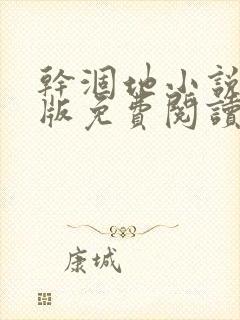 幹涸地小說
版免費閱讀
康城